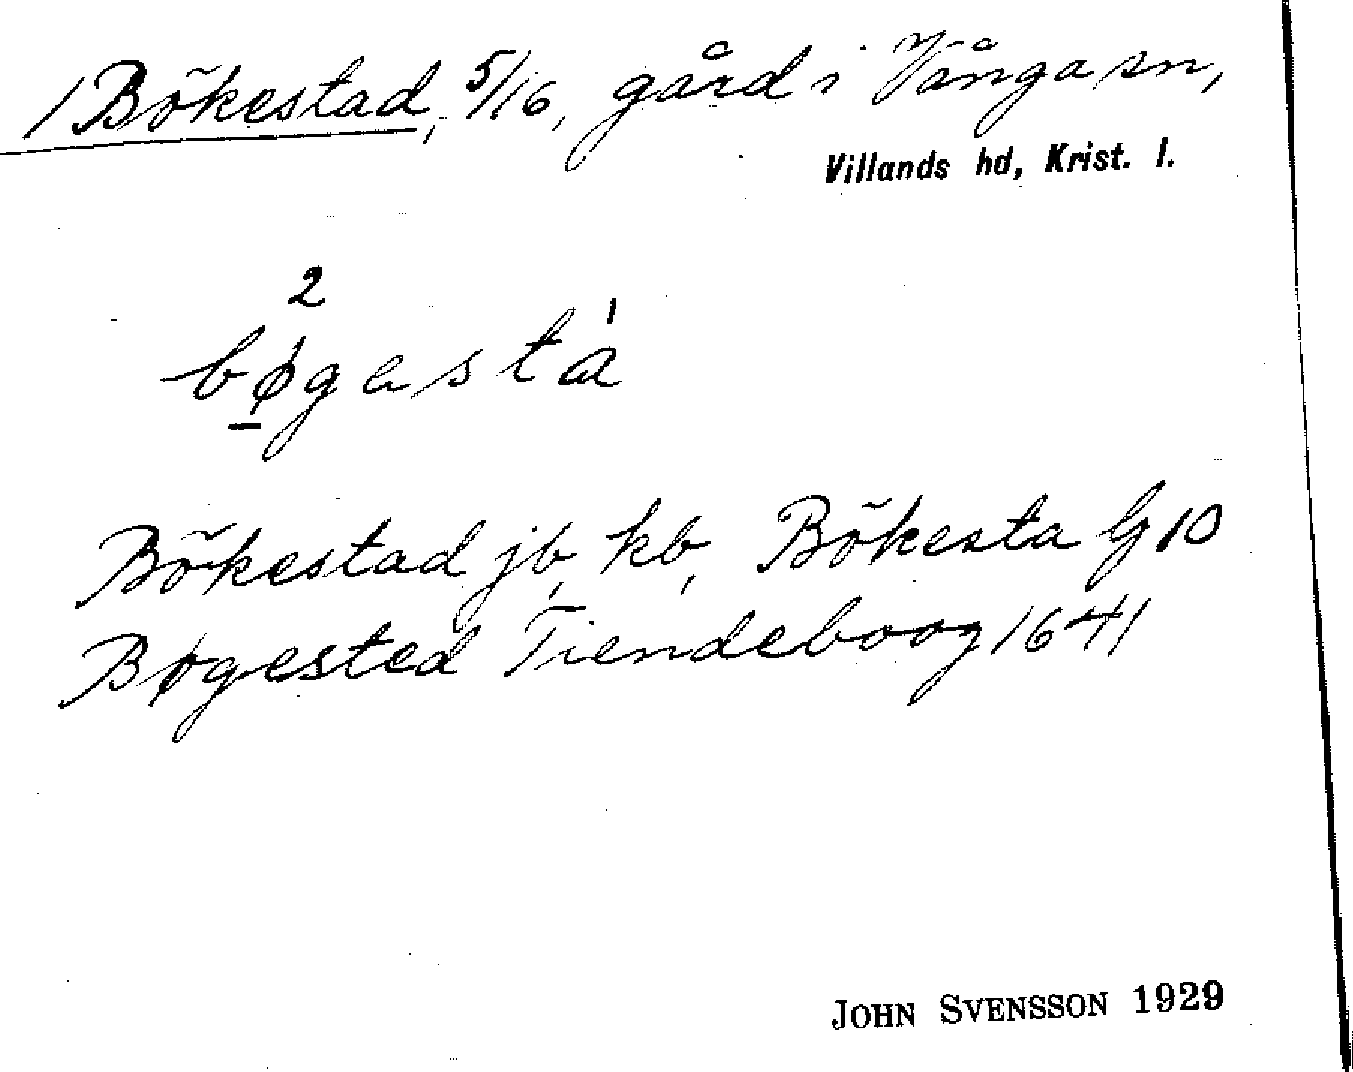 1 Bökestad, 5/16, gård i Vånga sn,
Villands hd, Krist. l.
2
bøgastá
Bökestad jb, kb, Bökesta G 10
Bøgested Tiendeboog 1641
JOHN SVENSSON 1929